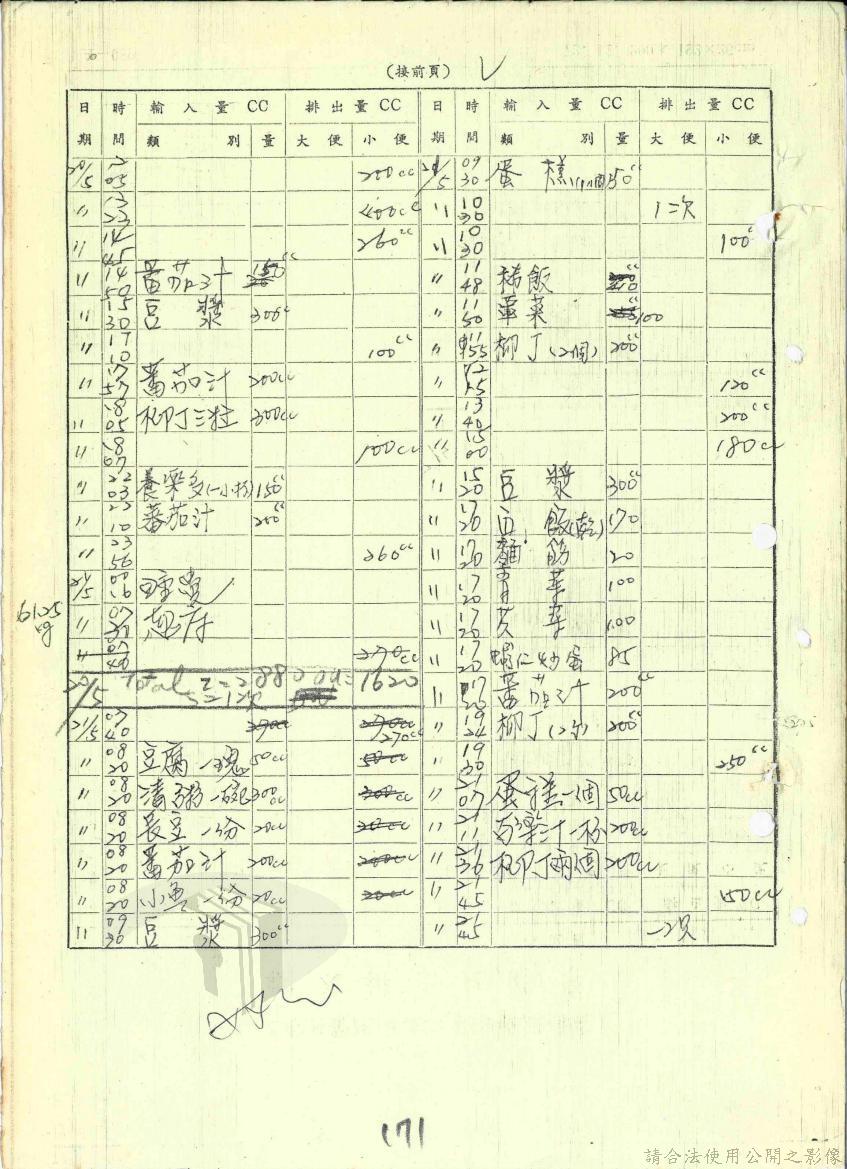 (接前頁)
日期 時間 輸入量CC 類別 量 排出量CC 大便 小便
20/5 12 05 200cc
〃 13 22 400cc
〃 14 45 260cc
〃 14 50 蕃茄汁 150cc
〃 15 30 豆漿 300cc
〃 17 10 100cc
〃 17 57 蕃茄汁 200cc
〃 18 05 柳丁三粒 300cc
〃 18 07 100cc
〃 22 03 養樂多(一小杯) 150cc
〃 22 10 蕃茄汁 200cc
〃 23 56 260cc
21/5 00 16 睡覺
〃 07 起床
6125 kg
〃 07 40 270cc
20/5 Total 1620
21/5 07 40 270cc 270cc
270cc
〃 08 20 豆腐一塊 50cc 50cc
〃 08 20 清粥一碗 300cc 300cc
〃 08 20 長豆一份 20cc 20cc
〃 08 20 蕃茄汁 200cc 200cc
〃 08 20 小魚一份 20cc 20cc
〃 09 30 豆漿 300cc
日期 時間 輸入量CC 類別 量 排出量CC 大便 小便
21/5 09 30 蛋糕 50cc
〃 10 30 1次
〃 10 30 100cc
〃 11 48 稀飯
〃 11 50 菜 100
〃 11 55 柳丁(2個) 200cc
〃 12 15 120cc
〃 13 40 200cc
〃 15 00 180cc
〃 15 20 豆漿 300cc
〃 17 20 白飯(乾) 170
〃 17 20 麵筋 20
〃 17 20 青菜 100
〃 17 20 100
〃 17 20 蝦仁炒蛋 85
〃 17 20 蕃茄汁 200cc
〃 19 24 柳丁 200cc
〃 19 30 250cc
〃 21 07 蛋糕一個 50cc
〃 21 11 汁一杯 200cc
〃 21 36 柳丁兩個 200cc
〃 21 45 150cc
〃 21 45 一次
171
請合法使用公開之影像